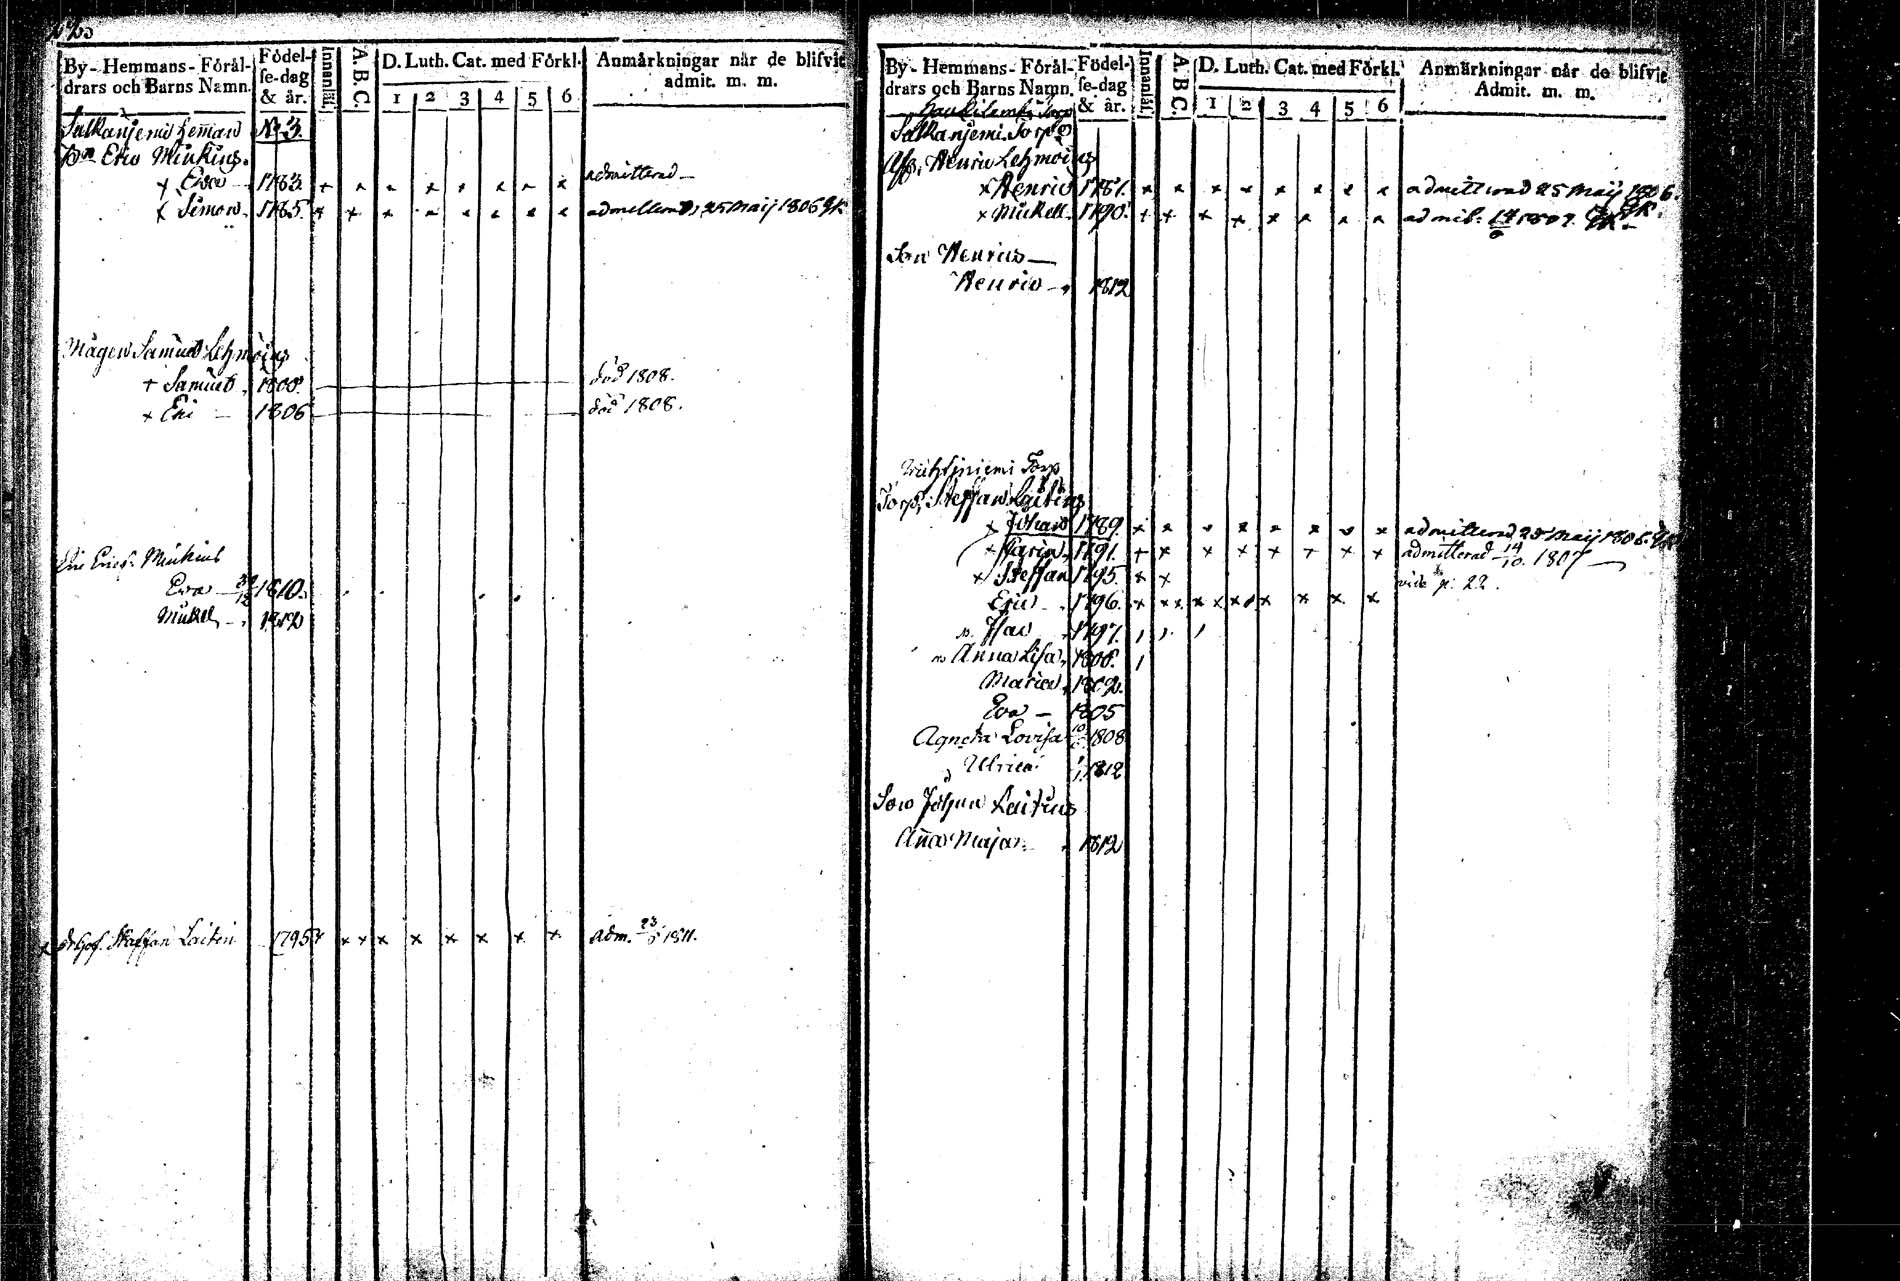 By- Hemmans- Föräl-
drars och Barns Namn.
Födel-
se-dag
& år.
Innanläs.
A. B. C.
D. Luth. Cat. med Förkl.
1 2 3 4 5 6
Anmärkningar når de blifvit
admit. m. m.
Salkanjemi Heman No 3.
Eric Miukins.
x Ewa 1783. admitterad
x Simon 1785. x x admitterad, 25 Maij 1806
Mågen Samuel Lehmoins
+ Samuel 1808. död 1808.
x Eric 1806 död 1808.
Eric Erics: Miukins
Eva 1810.
Mickel 1812
x Staffan Laitin 1795 x x x x x x x x x adm. 1811.
By- Hemmans- Föräl-
drars och Barns Namn.
Födel-
se-dag
& år.
Innanläs.
A. B. C.
D. Luth. Cat. med Förkl.
1 2 3 4 5 6
Anmärkningar når de blifvit
Admit. m. m.
Torp
Salkanjemi Torp
Henric Lehmoins
x Henric 1787. admitterad 25 Maij 1806.
x Mickell 1790. admit: 14/6 1807.
Son Henrics
Henric 1812
Torp
Torp. Steffan Laitins
x Johan 1789. admitterad 25 Maij 1806.
x Carin 1791. + x x x x + x x admitterad 14/10. 1807
x Steffan 1795. x x vide p. 22.
Eric 1796. x x x x x x x x x x
Isac 1797.
Anna Lisa 1800.
Maria 1802.
Eva 1805
Agneta Lovisa 1808
Ulrica 1812
Son Johan Laitins
Anna Maja 1812